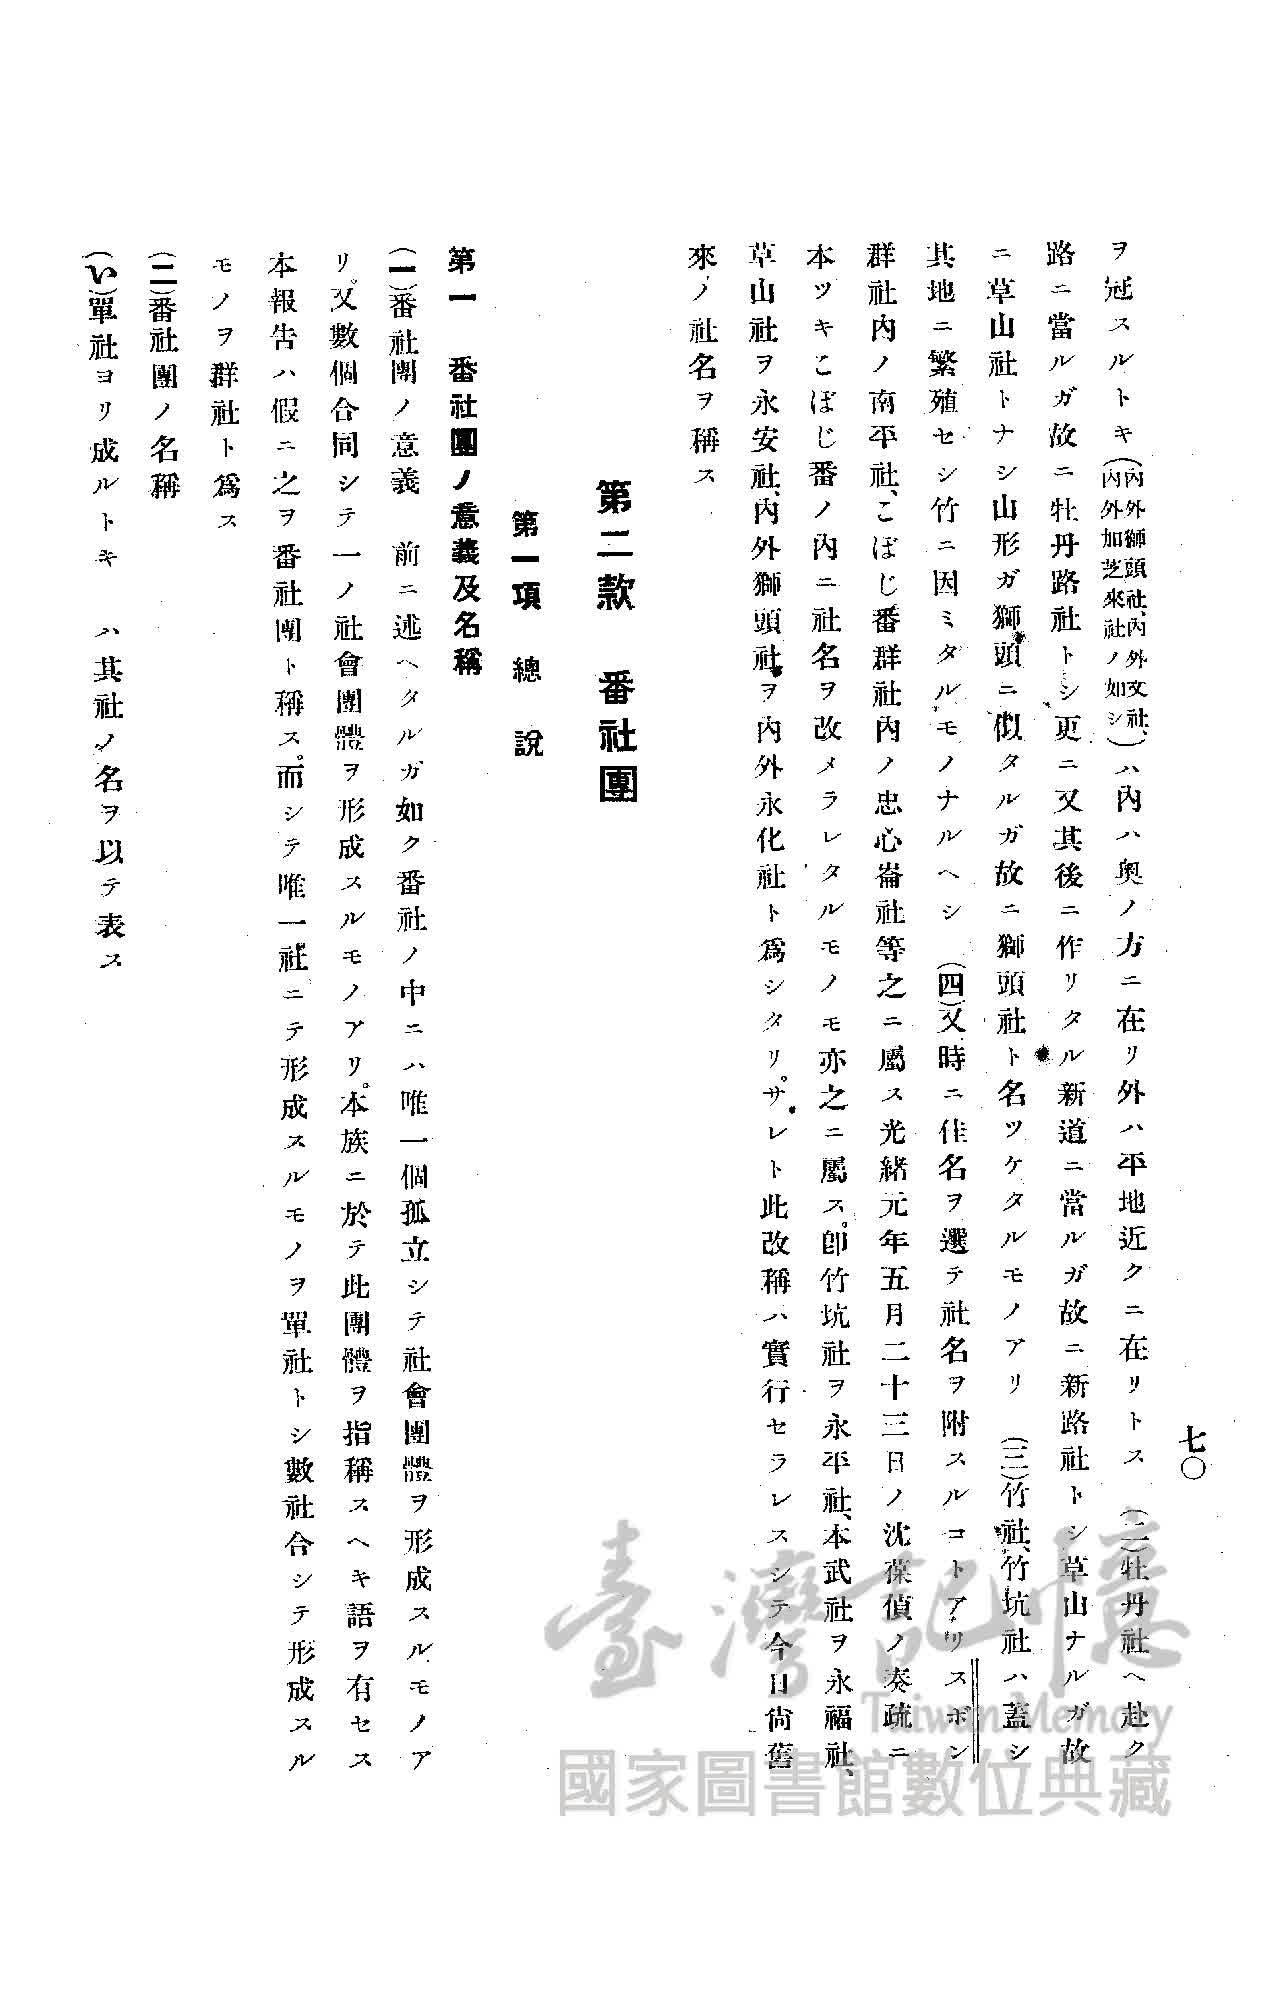 七〇
ヲ冠スルトキ(內外獅頭社、內外文社、內外加芝來社ノ如シ)ハ內ハ奧ノ方ニ在リ外ハ平地近クニ在リトス (二)牡丹社ヘ赴ク
路ニ當ルガ故ニ牡丹路社トシ更ニ又其後ニ作リタル新道ニ當ルガ故ニ新路社トシ草山ナルガ故
ニ草山社トナシ山形ガ獅頭ニ似タルガ故ニ獅頭社ト名ツケタルモノアリ (三)竹社、竹坑社ハ蓋シ
其地ニ繁殖セシ竹ニ因ミタルモノナルヘシ (四)又時ニ佳名ヲ選テ社名ヲ附スルコトアリスボン
群社內ノ南平社、こぼじ番群社內ノ忠心崙社等之ニ屬ス光緒元年五月二十三日ノ沈葆偵ノ奏疏ニ
本ツキこぼじ番ノ內ニ社名ヲ改メラレタルモノモ亦之ニ屬ス。卽竹坑社ヲ永平社、本武社ヲ永福社、
草山社ヲ永安社、內外獅頭社ヲ內外永化社ト爲シタリ。サレト此改稱ハ實行セラレスシテ今日尙舊
來ノ社名ヲ稱ス
第二款 番社團
第一項 總說
第一 番社團ノ意義及名稱
(一)番社團ノ意義 前ニ述ヘタルガ如ク番社ノ中ニハ唯一個孤立シテ社會團體ヲ形成スルモノア
リ。又數個合同シテ一ノ社會團體ヲ形成スルモノアリ。本族ニ於テ此團體ヲ指稱スヘキ語ヲ有セス
本報告ハ假ニ之ヲ番社團ト稱ス。而シテ唯一社ニテ形成スルモノヲ單社トシ數社合シテ形成スル
モノヲ群社ト爲ス
(二)番社團ノ名稱
(い)單社ヨリ成ルトキ ハ其社ノ名ヲ以テ表ス
臺灣記憶
Taiwan Memory
國家圖書館數位典藏